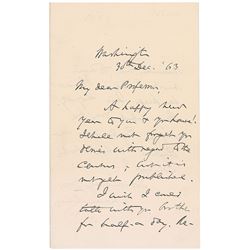 Washington
30th Dec. '63
My dear Professor,
A happy new
year to you & yr house!
I shall not forget yr
desire with regard to the
Census; but it is
not yet published.
I wish I could
talk with you
for half a day. Re-